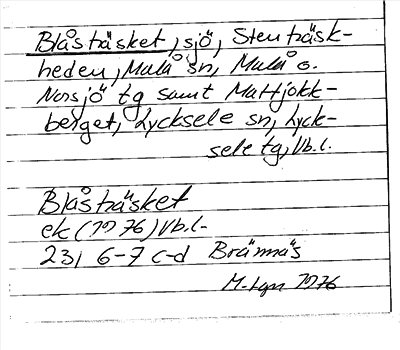 Blåsträsket, sjö, Stenträsk-
heden, Malå sn, Malå o.
Norsjö tg samt Mattjokk-
berget, Lycksele sn, Lyck-
sele tg, Vb.l.
Blåsträsket
ek (1976) Vb.l.
23I 6-7 c-d Brännäs
1976